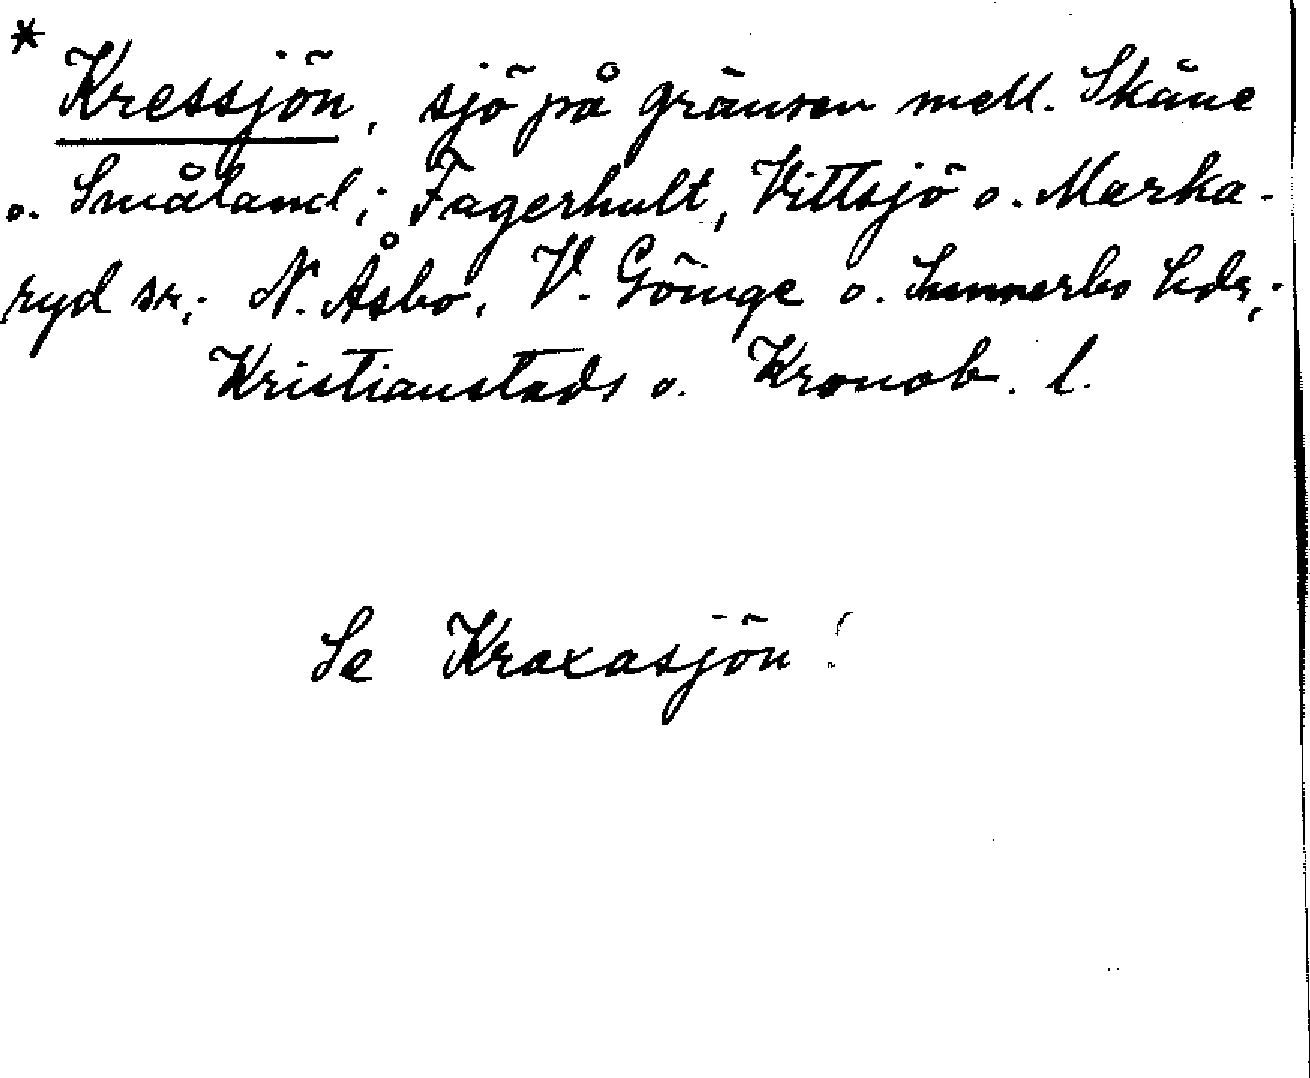 * Kressjön, sjö på gränsen mell. Skåne
o. Småland; Fagerhult, Vittsjö o. Marka-
ryd sr; N. Åsbo, V. Göinge o. Sunnerbo hdr;
Kristianstads o. Kronob. l.
Se Kraxasjön!